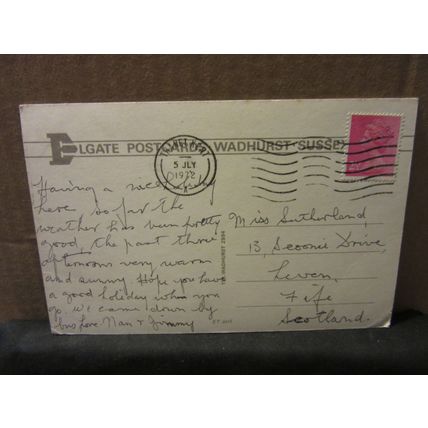 ELGATE POSTCARDS WADHURST SUSSEX
THANET KENT
5 JLY
1972
Having a nice
here so far the
weather has been pretty
good, the past three
afternoons very warm
and sunny. Hope you have
a good holiday when you
go. We came down by
bus. Love. Nan & Jimmy
Miss Sutherland,
13, Scoonie Drive,
Leven,
Fife
Scotland.